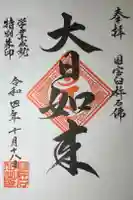 奉拝
国宝臼杵石佛
大日如来
学業成就
特別朱印
令和四年十月十八日